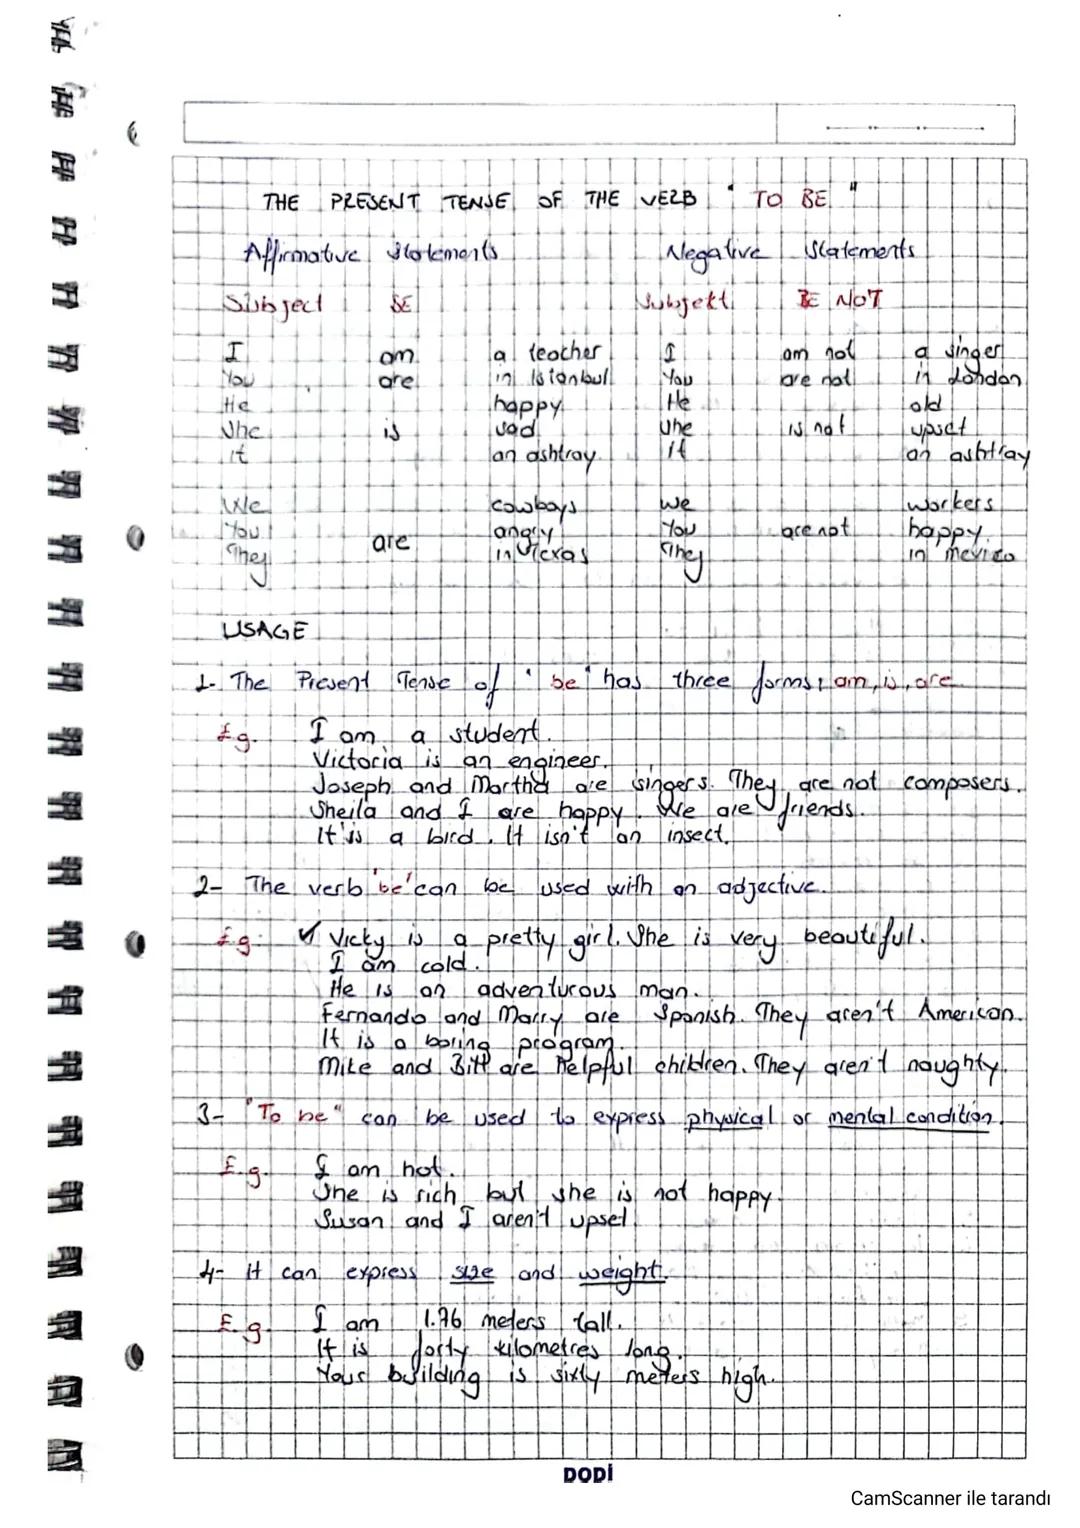 THE PRESENT TENSE OF THE VERB "TO BE"
Affirmative Statements Negative Statements
Subject BE Subjekt BE NOT
I am a teacher I am not a singer
You are in Istanbul You are not in London
He happy He old
She is sad She is not upset
It an ashtray It an ashtray
We cowboys We workers
You are angry You are not happy
They in Texas They in Mexico
USAGE
1- The Present Tense of "be" has three forms; am, is, are
E.g. I am a student.
Victoria is an engineer.
Joseph and Martha are singers. They are not composers.
Sheila and I are happy. We are friends.
It is a bird. It isn't an insect.
2- The verb 'be' can be used with an adjective.
E.g. ✓ Vicky is a pretty girl. She is very beautiful.
I am cold.
He is an adventurous man.
Fernando and Marry are Spanish. They aren't American.
It is a boring program.
Mike and Bill are helpful children. They aren't naughty.
3- "To be" can be used to express physical or mental condition.
E.g. I am hot.
She is rich but she is not happy.
Susan and I aren't upset.
4- It can express size and weight.
E.g. I am 1.76 meters tall.
It is forty kilometres long.
Your building is sixty meters high.
DODİ
CamScanner ile tarandı